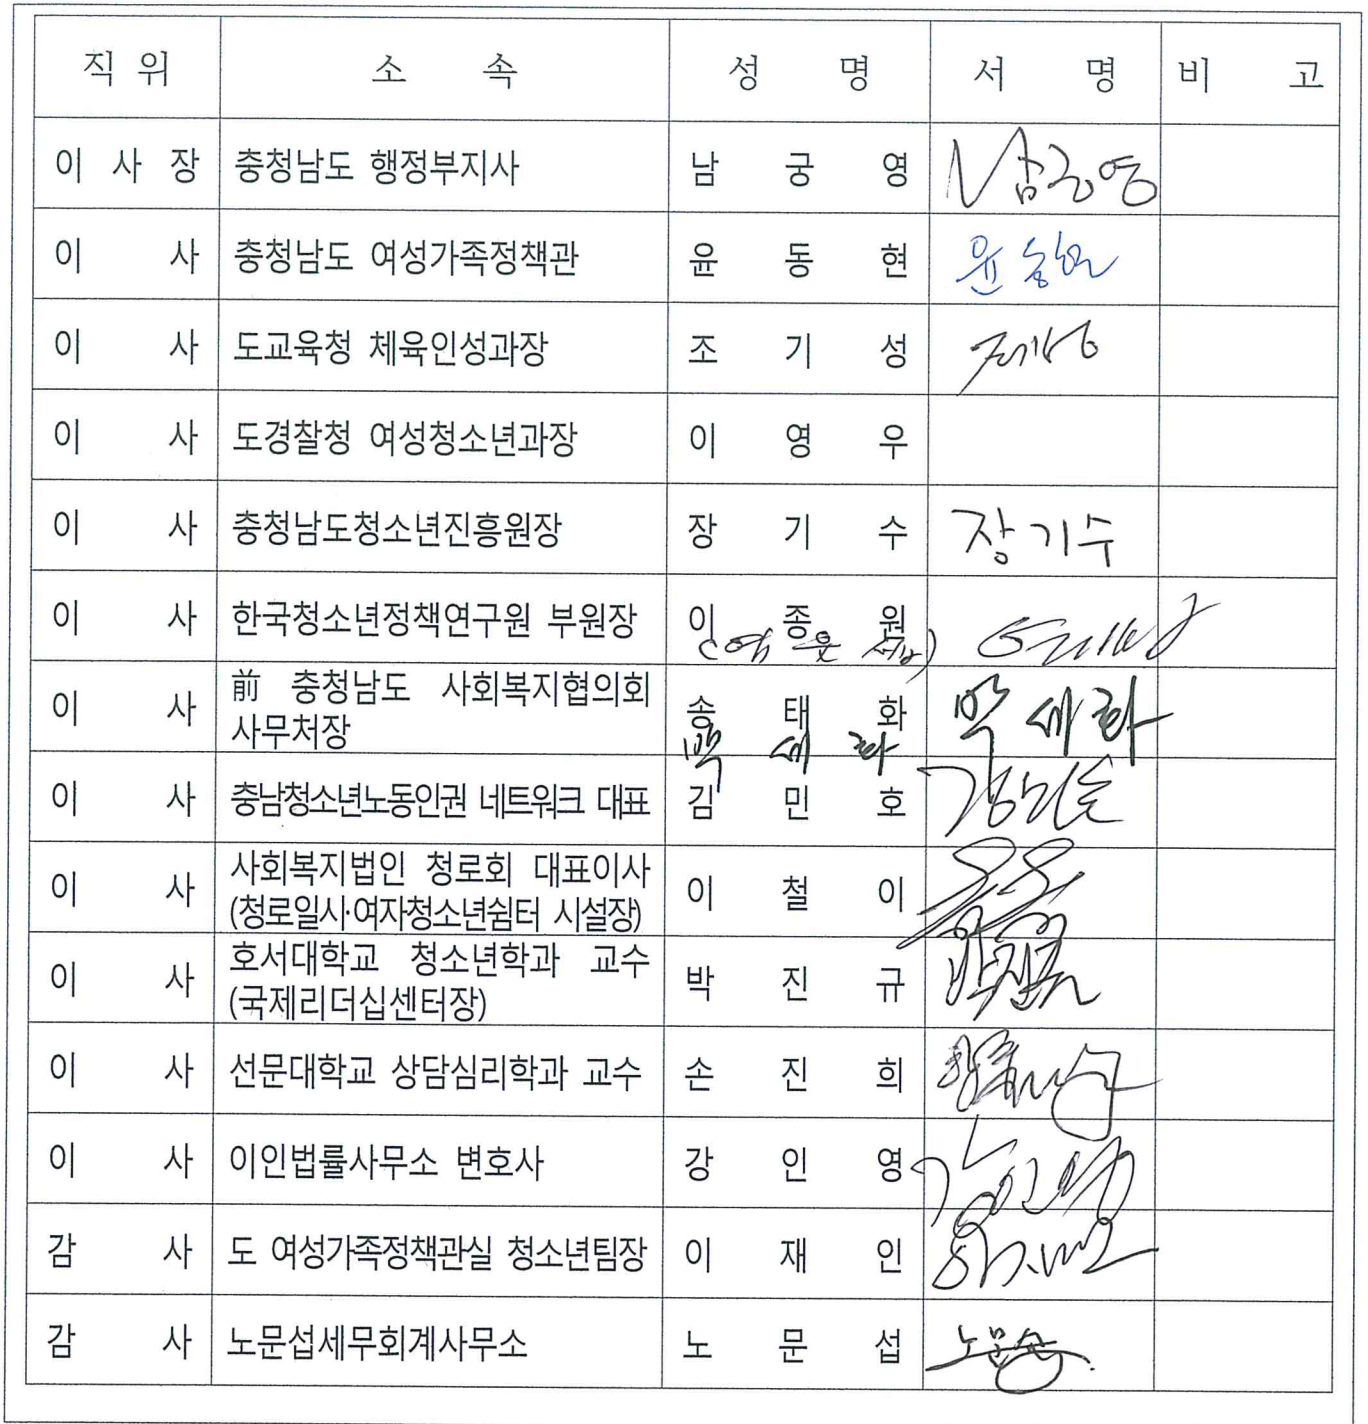 직 위 소 속 성 명 서 명 비 고
이 사 장 충청남도 행정부지사 남 궁 영 남궁영
이 사 충청남도 여성가족정책관 윤 동 현 윤동현
이 사 도교육청 체육인성과장 조 기 성
이 사 도경찰청 여성청소년과장 이 영 우
이 사 충청남도청소년진흥원장 장 기 수 장기수
이 사 한국청소년정책연구원 부원장 이 종 원
이 사 前 충청남도 사회복지협의회
사무처장 송 태 화
이 사 충남청소년노동인권 네트워크 대표 김 민 호 김민호
이 사 사회복지법인 청로회 대표이사
(청로일시·여자청소년쉼터 시설장) 이 철 이
이 사 호서대학교 청소년학과 교수
(국제리더십센터장) 박 진 규
이 사 선문대학교 상담심리학과 교수 손 진 희
이 사 이인법률사무소 변호사 강 인 영 강인영
감 사 도 여성가족정책관실 청소년팀장 이 재 인
감 사 노문섭세무회계사무소 노 문 섭 노문섭